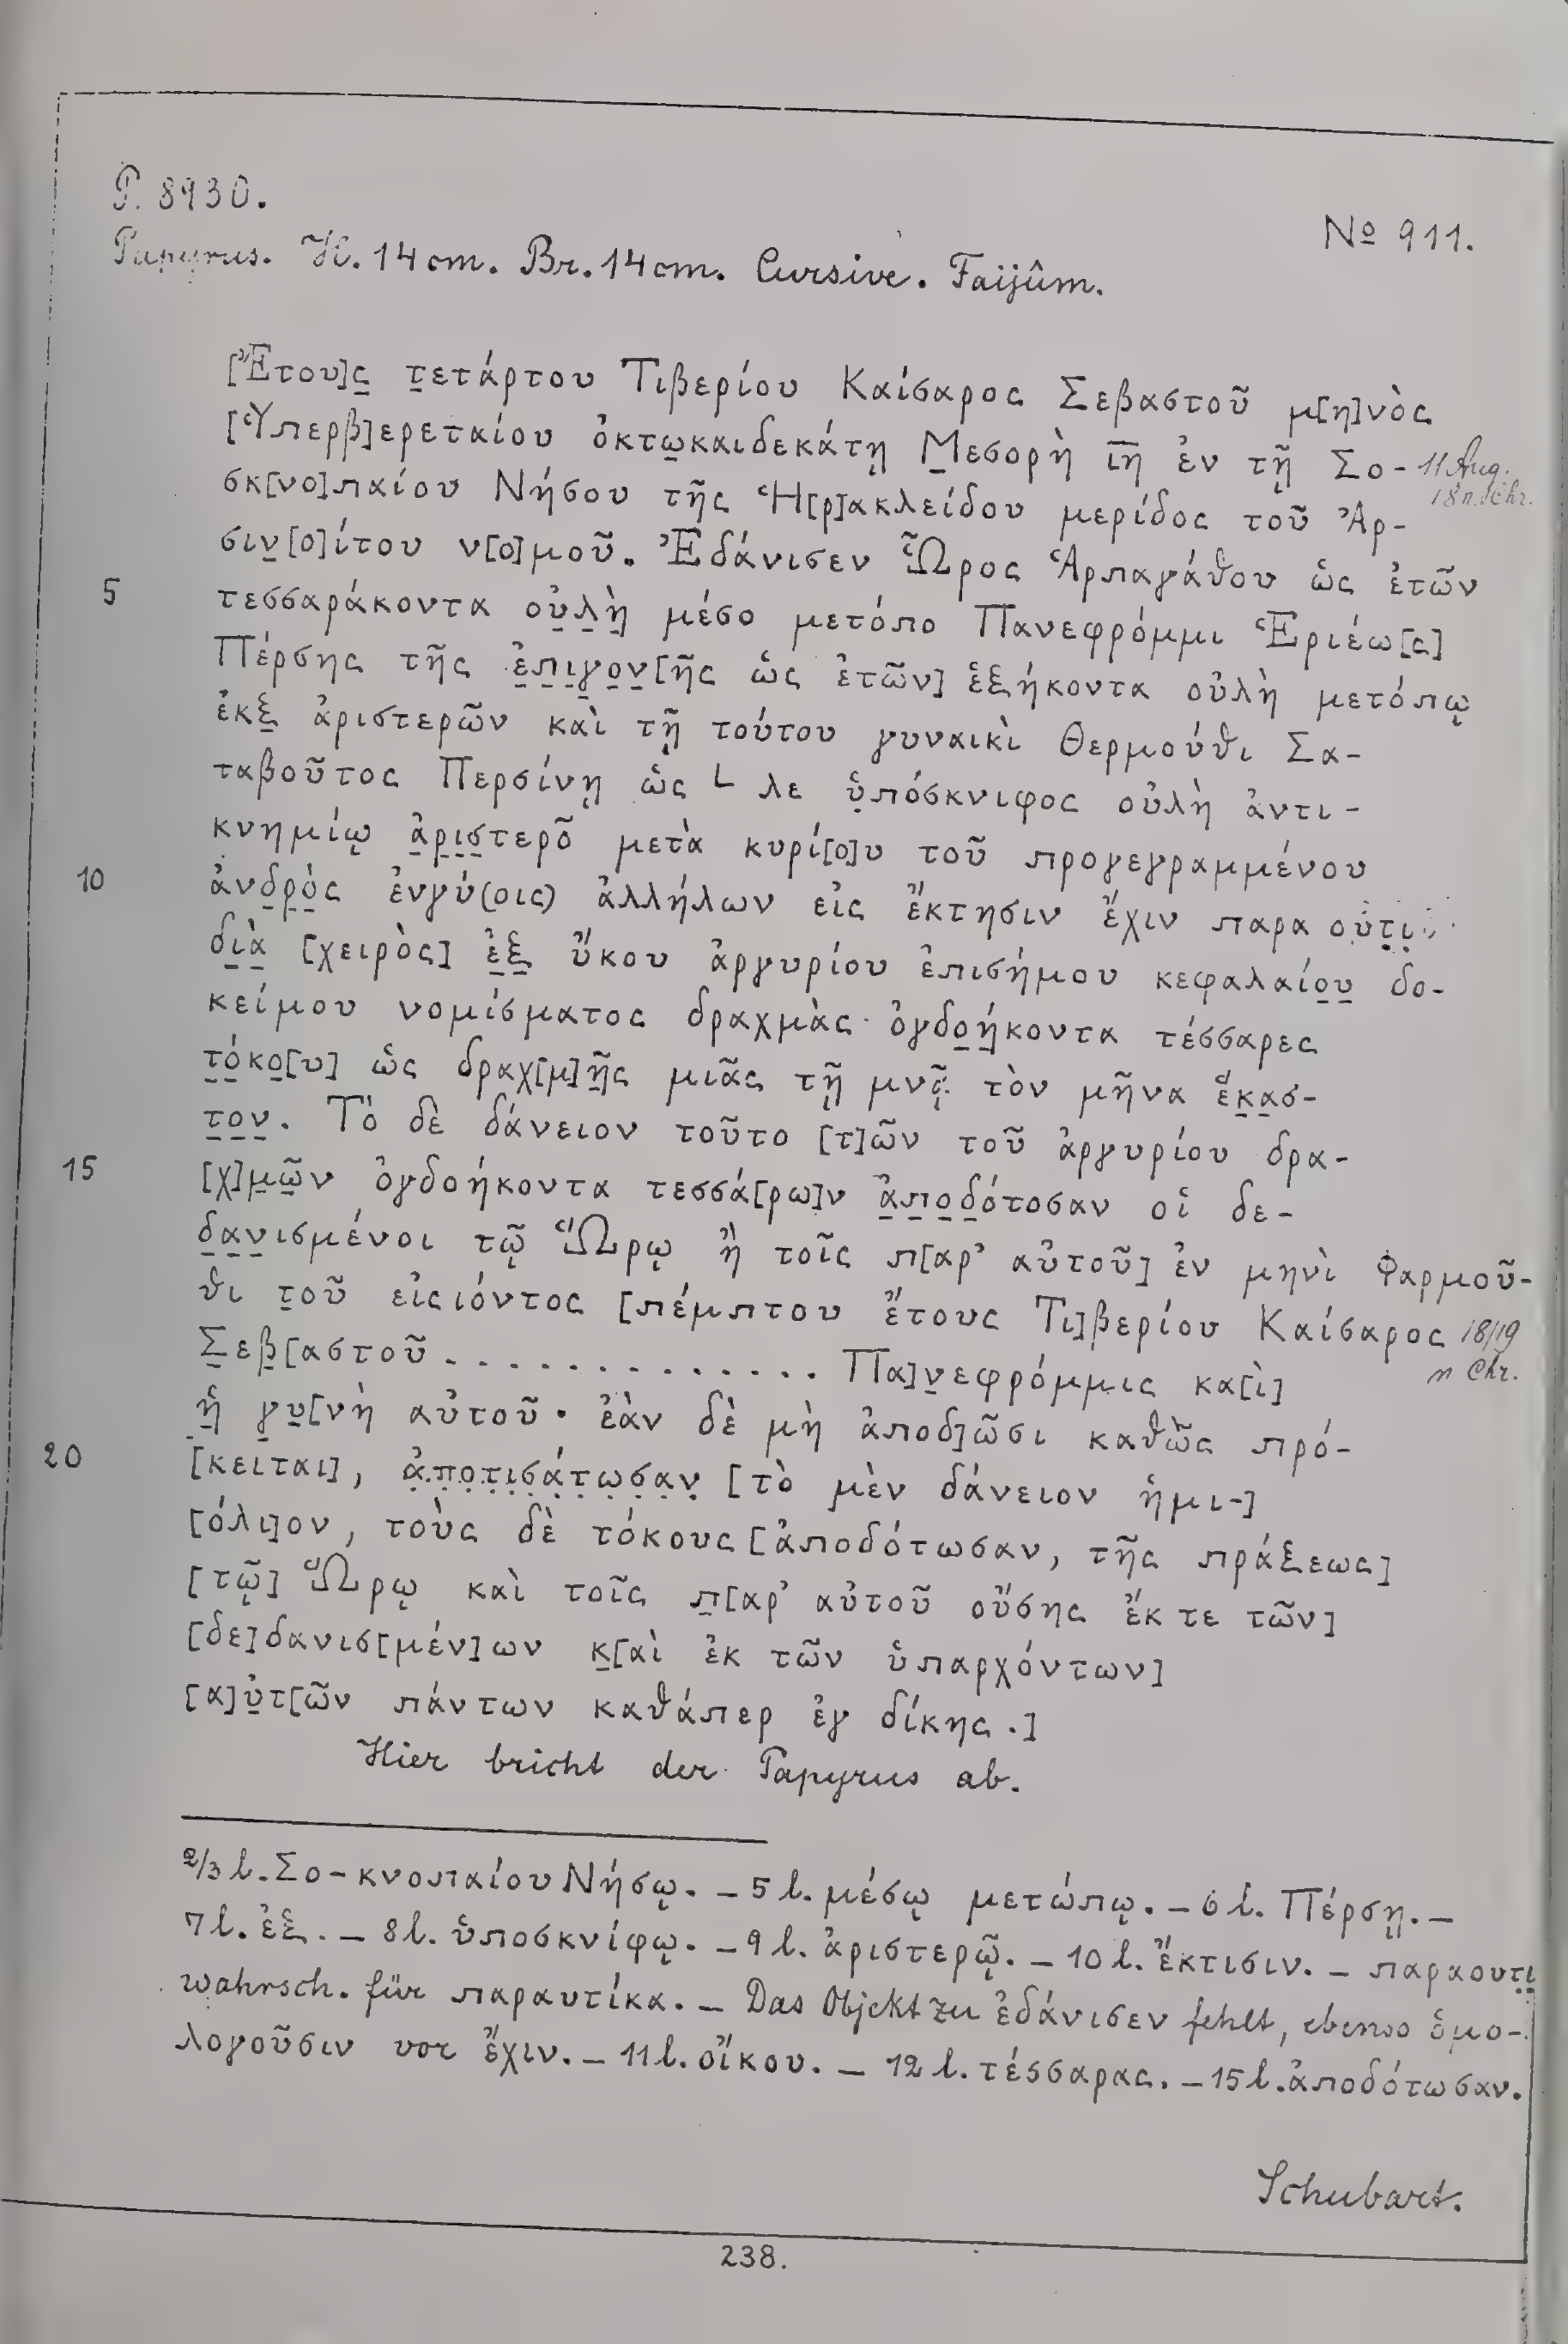 P. 8930.
Nº 911.
Papyrus. H. 14 cm. Br. 14 cm. Cursive. Faijûm.
[Ἔτου]ς τετάρτου Τιβερίου Καίσαρος Σεβαστοῦ μ[η]νὸς
[Ὑπερβ]ερεταίου ὀκτωκαιδεκάτῃ Μεσορὴ ι̅η̅ ἐν τῇ Σο- 11 Aug.
18 n. Chr.
σκ[νο]παίου Νήσου τῆς Ἡ[ρ]ακλείδου μερίδος τοῦ Ἀρ-
σιν[ο]ίτου ν[ο]μοῦ. Ἐδάνισεν Ὧρος Ἁρπαγάθου ὡς ἐτῶν
5 τεσσαράκοντα οὐλὴ μέσο μετόπο Πανεφρόμμι Ἑριέω[ς]
Πέρσης τῆς ἐπιγον[ῆς ὡς ἐτῶν] ἑξήκοντα οὐλὴ μετόπῳ
ἐκξ ἀριστερῶν καὶ τῇ τούτου γυναικὶ Θερμούθι Σα-
ταβοῦτος Περσίνῃ ὡς L λε ὑπόσκνιφος οὐλὴ ἀντι-
κνημίῳ ἀριστερο͂ μετὰ κυρί[ο]υ τοῦ προγεγραμμένου
10 ἀνδρὸς ἐνγύ(οις) ἀλλήλων εἰς ἔκτησιν ἔχιν παρα οὐτι
διὰ [χειρὸς] ἐξ ὔκου ἀργυρίου ἐπισήμου κεφαλαίου δο-
κείμου νομίσματος δραχμὰς ὀγδοήκοντα τέσσαρες
τόκο[υ] ὡς δραχ[μ]ῆς μιᾶς τῇ μνᾷ τὸν μῆνα ἕκασ-
τον. Τὸ δὲ δάνειον τοῦτο [τ]ῶν τοῦ ἀργυρίου δρα-
15 [χ]μῶν ὀγδοήκοντα τεσσά[ρω]ν ἀποδότοσαν οἱ δε-
δανισμένοι τῷ Ὥρῳ ἢ τοῖς π[αρ’ αὐτοῦ] ἐν μηνὶ Φαρμοῦ-
θι τοῦ εἰςιόντος [πέμπτου ἔτους Τι]βερίου Καίσαρος 18/19
n Chr.
Σεβ[αστοῦ . . . . . . . . . . . . . . Πα]νεφρόμμις κα[ὶ]
ἡ γυ[νὴ αὐτοῦ· ἐὰν δὲ μὴ ἀποδ]ῶσι καθὼς πρό-
20 [κειται], ἀποτισάτωσαν [τὸ μὲν δάνειον ἡμι-]
[όλι]ον, τοὺς δὲ τόκους [ἀποδότωσαν, τῆς πράξεως]
[τῷ] Ὥρῳ καὶ τοῖς π[αρ’ αὐτοῦ οὔσης ἔκ τε τῶν]
[δε]δανισ[μέν]ων κ[αὶ ἐκ τῶν ὑπαρχόντων]
[α]ὐτ[ῶν πάντων καθάπερ ἐγ δίκης.]
Hier bricht der Papyrus ab.
2/3 l. Σο-κνοπαίου Νήσῳ. – 5 l. μέσῳ μετώπῳ. – 6 l. Πέρσῃ. –
7 l. ἐξ. – 8 l. ὑποσκνίφῳ. – 9 l. ἀριστερῷ. – 10 l. ἔκτισιν. – παραουτι
wahrsch. für παραυτίκα. – Das Objekt zu ἐδάνισεν fehlt, ebenso ὁμο-
λογοῦσιν vor ἔχιν. – 11 l. οἴκου. – 12 l. τέσσαρας. – 15 l. ἀποδότωσαν.
Schubart.
238.